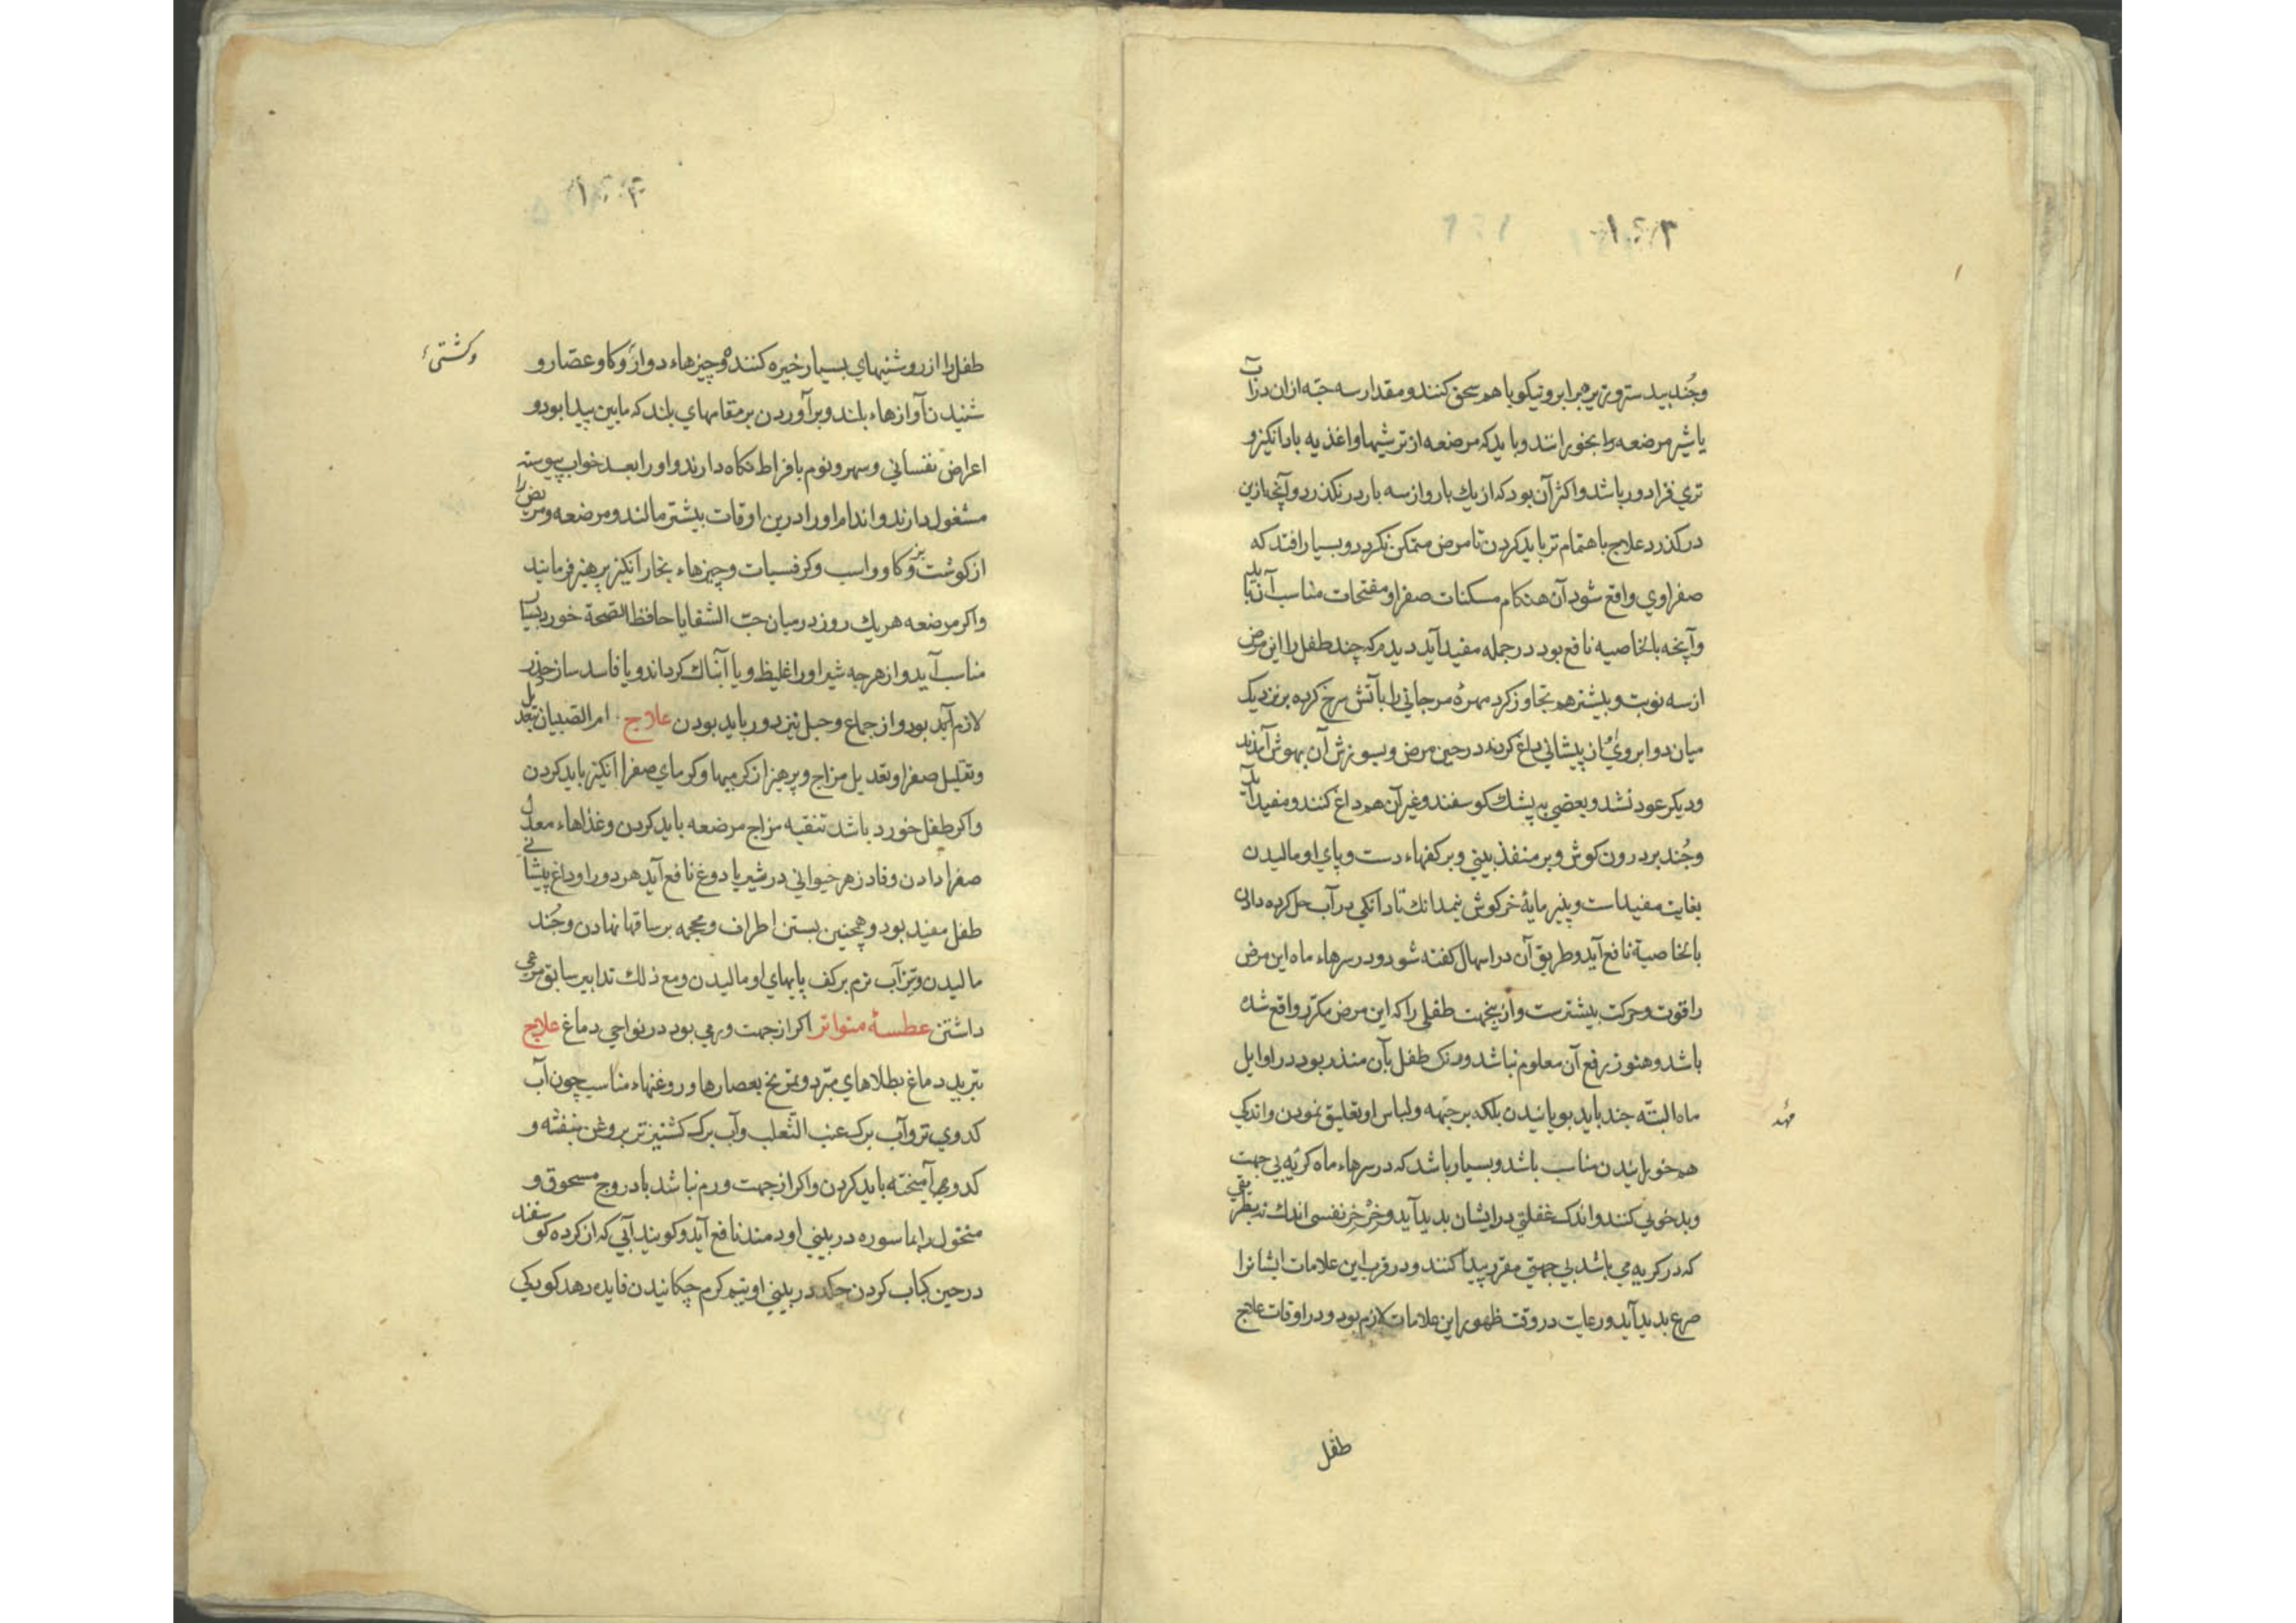 وجُند بیدستر و زیره برابر و نیکو با هم سحق کنند و مقدار سه حبّه ازان در آب
یا شیر مرضعه را بخورانند و باید که مرضعه از ترشیها و اغذیه بادانکیز و
تری فزا دور باشد و اکثر آن بود که از یك بار و از سه بار در نکذرد و آنچه ازین
درکذرد علاج باهتمام تر باید کردن تا مرض متمکن نکردد و بسیار افتد که
صفراوی واقع شود آن هنکام مسکنات صفرا و مفتحات مناسب آن باید
وآنچه بالخاصیه نافع بود در جمله مفید آید دیدم که چند طفل را این مرض
از سه نوبت و بیشتر هم تجاوز کرد مهرهٔ مرجانی را بآتش سرخ کرده بر نزدیک
میان دو ابروی از پیشانی داغ کردند در حین مرض و بسوزش آن بهوش آمدند
ودیکر عود نشد و بعضی به پشك کوسفند و غیر آن هم داغ کنند و مفید آید
وجُند بر درون کوش و بر منفذ بینی و بر کفهاء دست و پای او مالیدن
بغایت مفیداست و پنیر مایهٔ خرکوش نیمدانك تا دانکی در آب حل کرده دادن
بالخاصیة نافع آید و طریق آن در اسهال کفته شود و در سرهاء ماه این مرض
را قوت و حرکت بیشترست و ازینجهت طفلی را که این مرض مکرّر واقع شده
باشد و هنوز رفع آن معلوم نباشد و رنک طفل بآن منذر بود در اوایل
ماه البتّه جند باید بویانیدن بلکه بر جبهه و لباس او تعلیق نمودن و اندکی
مهد
هم خورانیدن مناسب باشد و بسیار باشد که در سرهاء ماه کریه بی جهت
وبدخویی کنند و اندک غفلتی در ایشان بدید آید و خِرْخِر نفسی اندك نه بطریقی
که در کریه می باشد بی جهتی مقرر پیدا کنند و در قرب این علامات ایشانرا
صرع بدید آید و رعایت در وقت ظهور این علامات لازم بود و در اوقات علاج
طفل
طفل را از روشنیهای بسیار خیره کننده و چیزهاء دوار و کاو عصّار و
وکشتی
شنیدن آوازهاء بلند و برآوردن بر مقامهای بلند که مابین پیدا بود و
اعراض نفسانی و سهر و نوم بافراط نکاه دارند و اورا بعد خواب پیوسته
مشغول دارند و اندام اورا درین اوقات بیشتر مالند و مرضعه و مریض را
از کوشت بز و کاو و اسب و کرفسیات و چیزهاء بخار انکیز پرهیز فرمایند
واکر مرضعه هر یك روز در میان حبّ الشفا یا حافظ الصّحة خورد بسیار
مناسب آید و از هرچه شیر اورا غلیظ و یا آبناك کرداند و یا فاسد سازد حذر
لازم آید بود و از جماع و حبل نیز دور باید بودن علاج ام الصّبیان تبدیل
وتقلیل صفرا و تعدیل مزاج و پرهیز از کرمیها و کرمای صفرا انکیز باید کردن
واکر طفل خورد باشد تنقیه مزاج مرضعه باید کردن و غذاهاء معدل
صفرا دادن و فادزهر حیوانی در شیر یا دوغ نافع آید هر دورا و داغ پیشانی
طفل مفید بود و همچنین بستن اطراف و محجمه بر ساقها نهادن و جُند
مالیدن و تیزآب نرم بر کف پایهای او مالیدن و مع ذلك تدابیر سابق مرعی
داشتن عطسهٔ متواتر اکر از جهت ورمی بود در نواحی دماغ علاج
تبرید دماغ بطلاهای مبرّد و تمریخ بعصارها و روغنهاء مناسب چون آب
کدوی تر و آب برك عنب الثّعلب و آب برك کشنیز تر بروغن بنفشه و
کدو بهم آمیخته باید کردن و اکر از جهت ورم نباشد بادروج مسحوق و
منخول را بماسوره در بینی او دمند نافع آید و کویند آبی که از کرده کوسفند
در حین کباب کردن چکد در بینی او نیم کرم چکانیدن فایده دهد کویکی